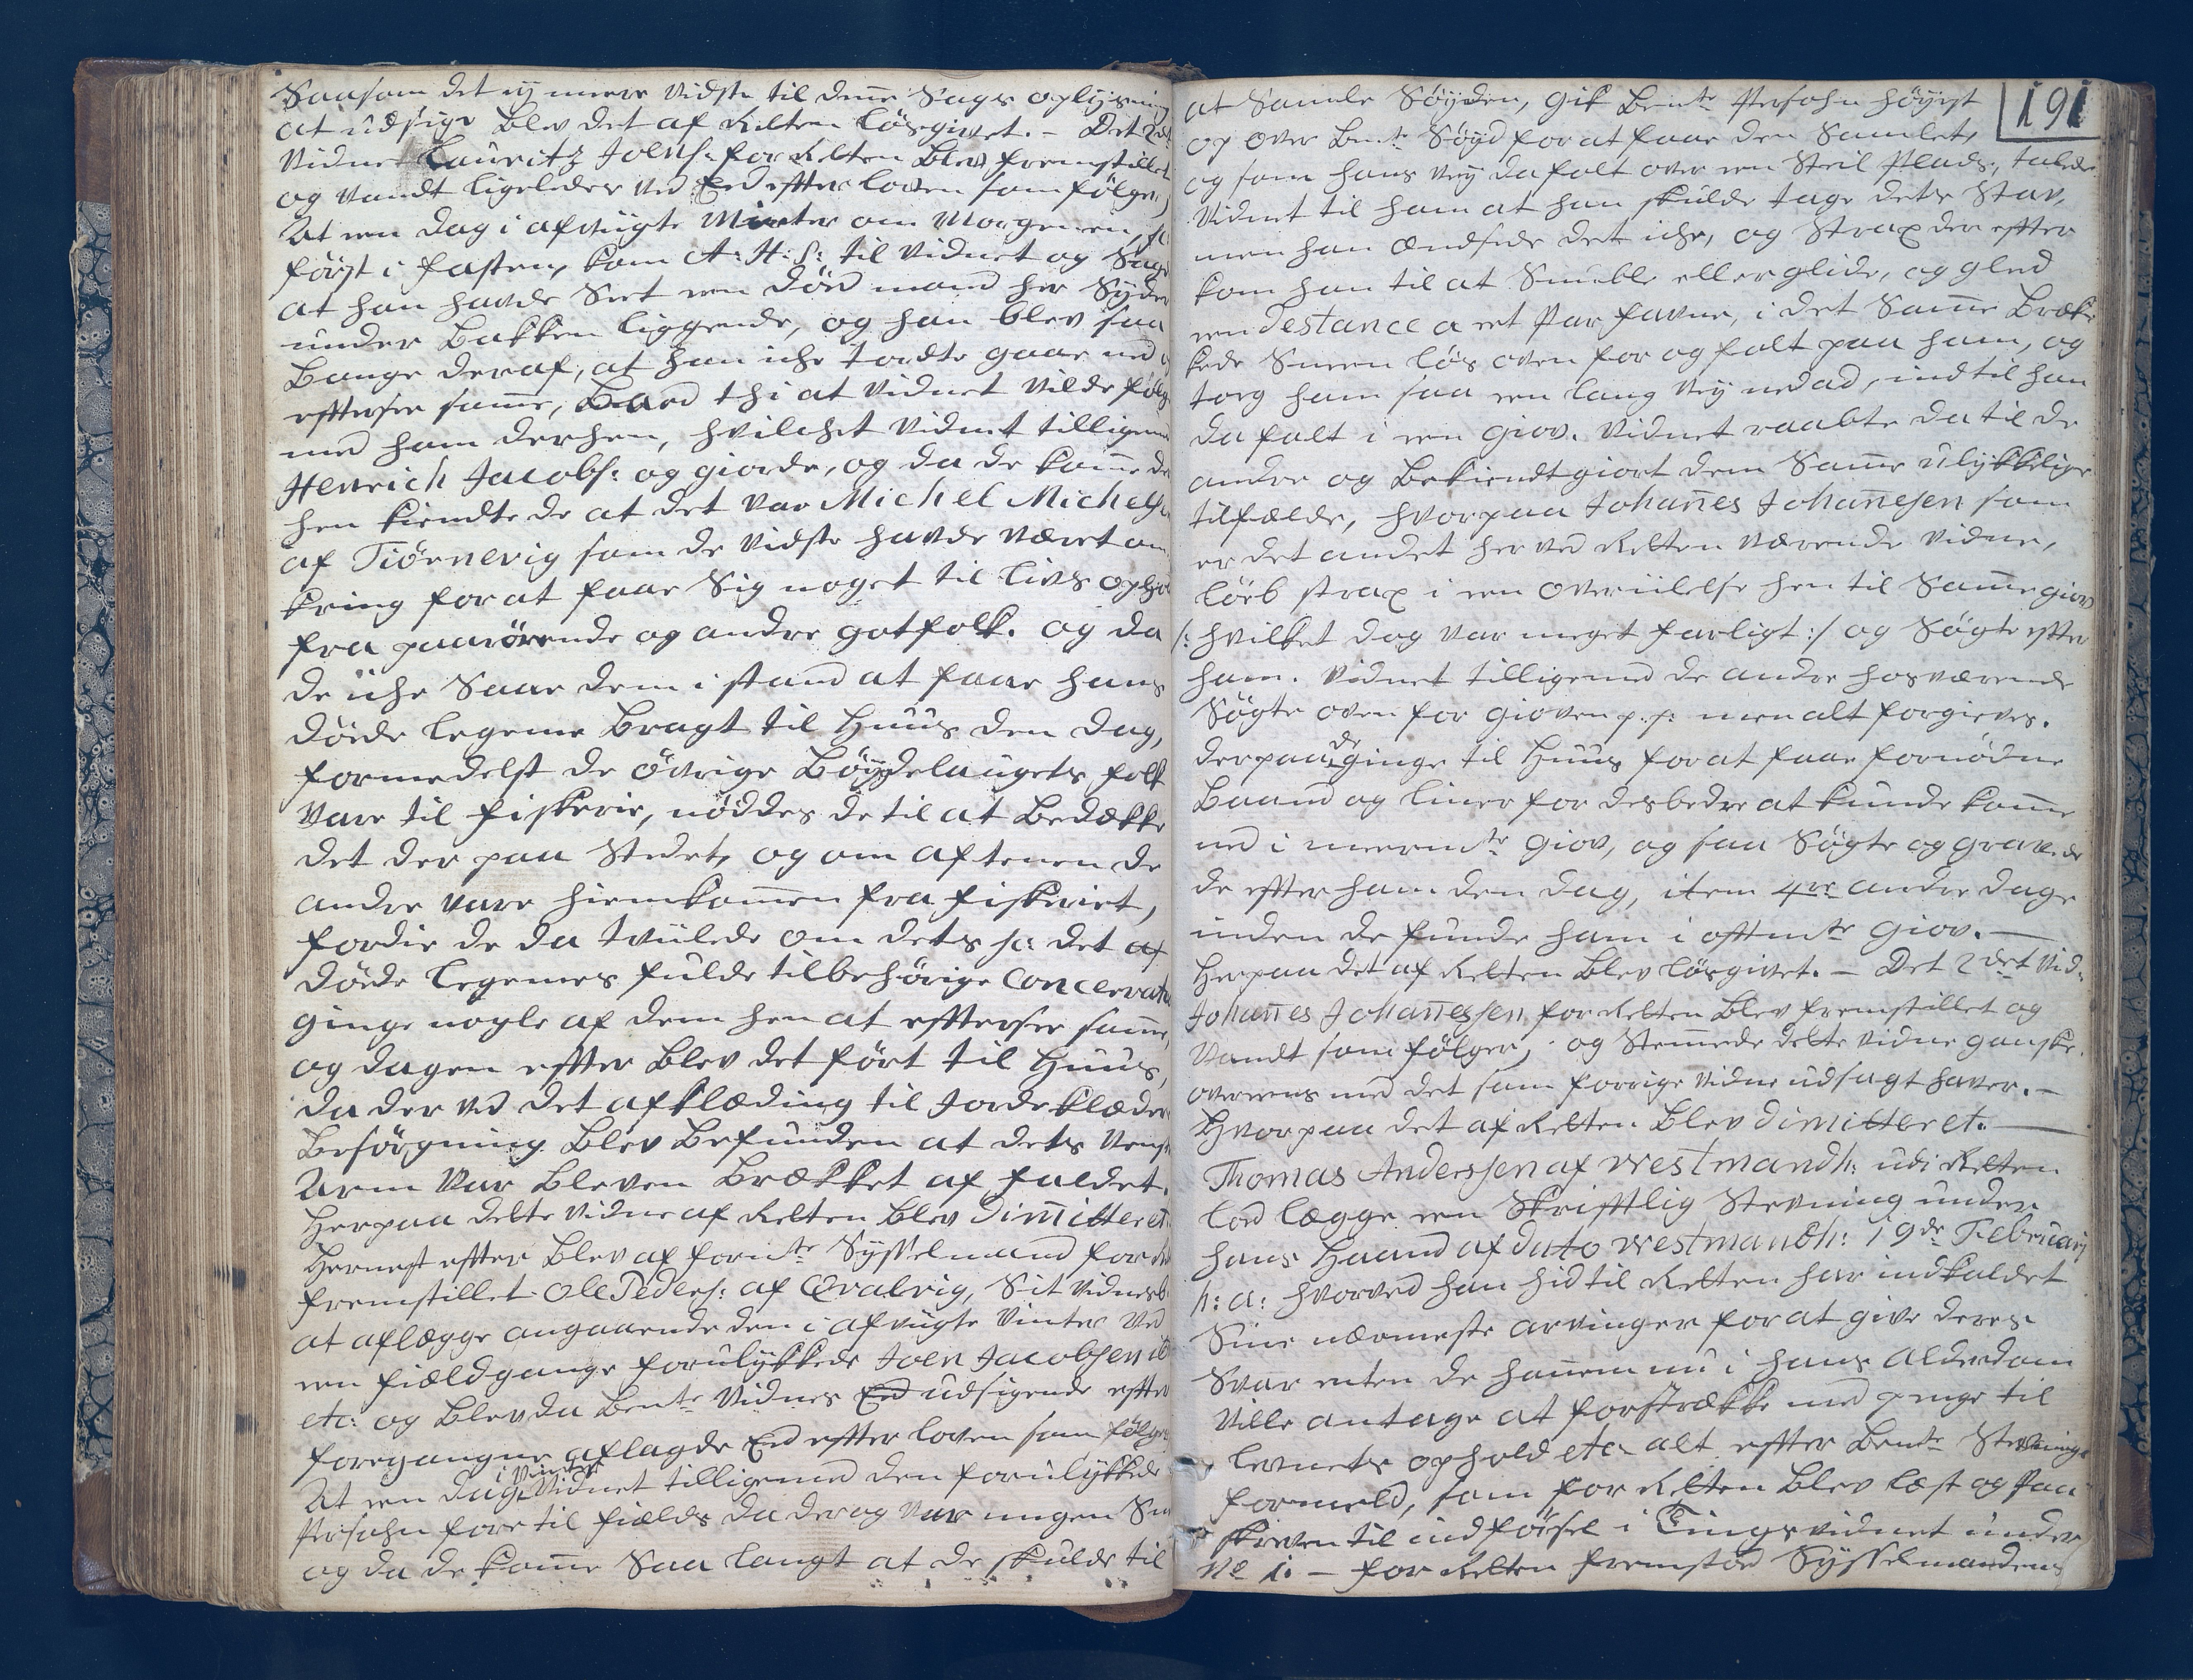 Saasom det ej meere vidste til denne Sags oplysning
at udsige blev det af Retten løsgivet. – Det 2det
Vidne Lauritz Joens: for Retten blev fremstillet
og vandt ligeledes ved Eed efter loven som følger,
At een dag i afvigte Winter om Morgenen,
først i fasten, kom A: H: S: til Vidnet og Sagde
at han havde Seet een død mand her Syder
under Bakken liggende, og han blev saa
bange deraf, at han iche tordte gaae ned
efftersee samme, baed thi at Vidnet vilde følge
med ham derhen, hvilchet Vidnet tilligemed
Henrich Jacobs: og giorde, og da de komme der
hen kiendte de at det var Michel Michels:
af Tiörnevig som de vidste havde været om
kring for at faae Sig noget til livs ophold
fra paarørende og andre gotfolk. og da
de iche Saae dem i stand at faae hans
døde legeme bragt til Huus den dag,
formedelst de øvrige Bøydelaugets folk
vare til fiskerie, nøddes de til at bedække
det der paa Stedet, og om aftenen de
andre vare hiemkommen fra fiskeriet,
fordie de da tviilede om dets ja det af
døde legemes fulde tilbehørige concervation
ginge nogle af dem hen at efftersee samme,
og dagen effter blev det ført til Huus,
da der ved det afklæding til Jordeklæder
besørgning blev befunden at dets venstre
Arm var bleven brækket af faldet.
Herpaa dette Vidne af Retten blev dimitteret.
Hernest effter blev af forn:te Sysselmand for Retten
fremstillet Ole Peders: af Qvalvig, Sit vidnesb
at aflægge angaaende den i afvigte Vinter ved
een fieldgange forulykkede Joen Jacobsen ib
etc: og blev da bem:te Vidnes Eed udsigende effter
foregangne aflagde Eed effter loven som følger
At een dag i Vinter Vidnet tilligemed den forulykkede
Persohn fore til fields da der og var ingen Snee
og da de komme Saa langt at de skulde til
191
at Samle Søyden, gik bem:te Persohn høyest
op over bem:te Søyd for at faae den Samlet,
og som hans vey da falt over een Steil Plads, talede
Vidnet til ham at han skulde tage dets Stav,
men han ændsede det iche, og Strax der effter
kom han til at Snuble eller glide, og gled
een destance a eet Par favne, i det Samme Bræk
kede Sneen løs oven for og falt paa ham, og
tog ham saa een lang vey nedad, indtil han
da falt i een giov. Vidnet raabte da til de
andre og bekiendtgiort dem Samme ulykkelige
tilfælde, hvorpaa Johannes Johannesen som
er det andet her ved Retten værende vidne,
løeb strax i een overiilelse hen til Samme giov
/: hvilket dog var meget farligt :/ og Søgte effter
ham. Vidnet tilligemed de andre hosværende
Søgte oven for gioven p. s: men alt forgieves.
derpaa de ginge til Huus for at faae fornødne
Baand og liner for desbedre at kunde komme
ned i meerm:te giov, og saa Søgte og gravede
de effter ham den dag, item 4re andre dage
inden de funde ham i offtm:te giov. –
Herpaa det af Retten blev løsgivet. – Det 2det Vid:
Johannes Johannessen for Retten blev fremstillet og
vandt som følger, og Stemmede dette Vidne ganske
overeens med det som forrige vidne udsagt haver. –
Hvorpaa det af Retten blev dimitteret. –
Thomas Anderssen af Westmandh: udi Retten
lod lægge een Skrifftlig Stevning under
hans Haand af dato Westmandh: 19de Februarij
h: a: hvorved han hid til Retten har indkaldet
Sine nærmeste arvinger for at give deres
Svar enten de hannem nu i hans alderdom
ville antage at forstrække med penge til
levnets ophold etc. alt effter bem:te Stevnings
formeld, som for Retten blev læst og Paa
skreven til indførsel i Tingsvidnet under
No 1. – for Retten fremstod Sysselmandens